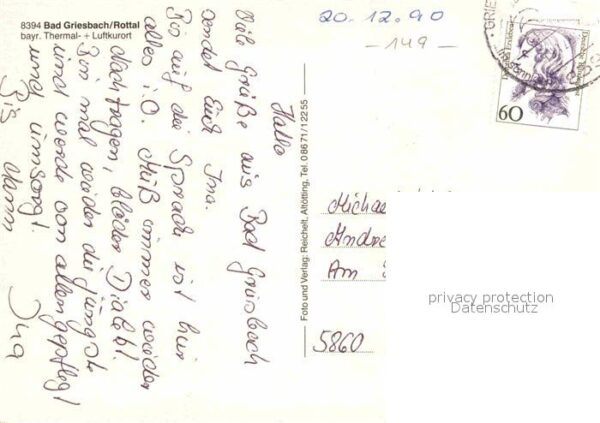 8394 Bad Griesbach/Rottal
bayr. Thermal- + Luftkurort
20.12.90
- 149 -
60
Hallo
Viele Grüße aus Bad Griesbach
sendet Euch Ina.
Bis auf die Sprache ist hier
alles i.O. Muß immer wieder
nachfragen, blöder Dialekt!
Bin mal wieder die jüngste
und werde von allen gepflegt
und umsorgt.
Bis dann
Ina
Foto und Verlag: Reichelt, Altötting, Tel. 08671/12255
Michae
Andre
Am
5860
privacy protection
Datenschutz